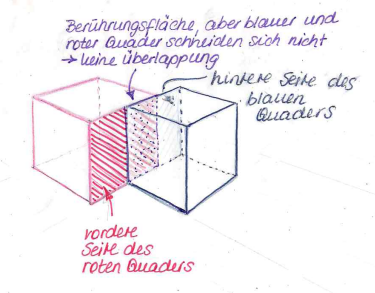 Berührungsfläche, aber blauer und
roter Quader schneiden sich nicht
→ keine Überlappung
hintere Seite des
blauen
Quaders
vordere
Seite des
roten Quaders